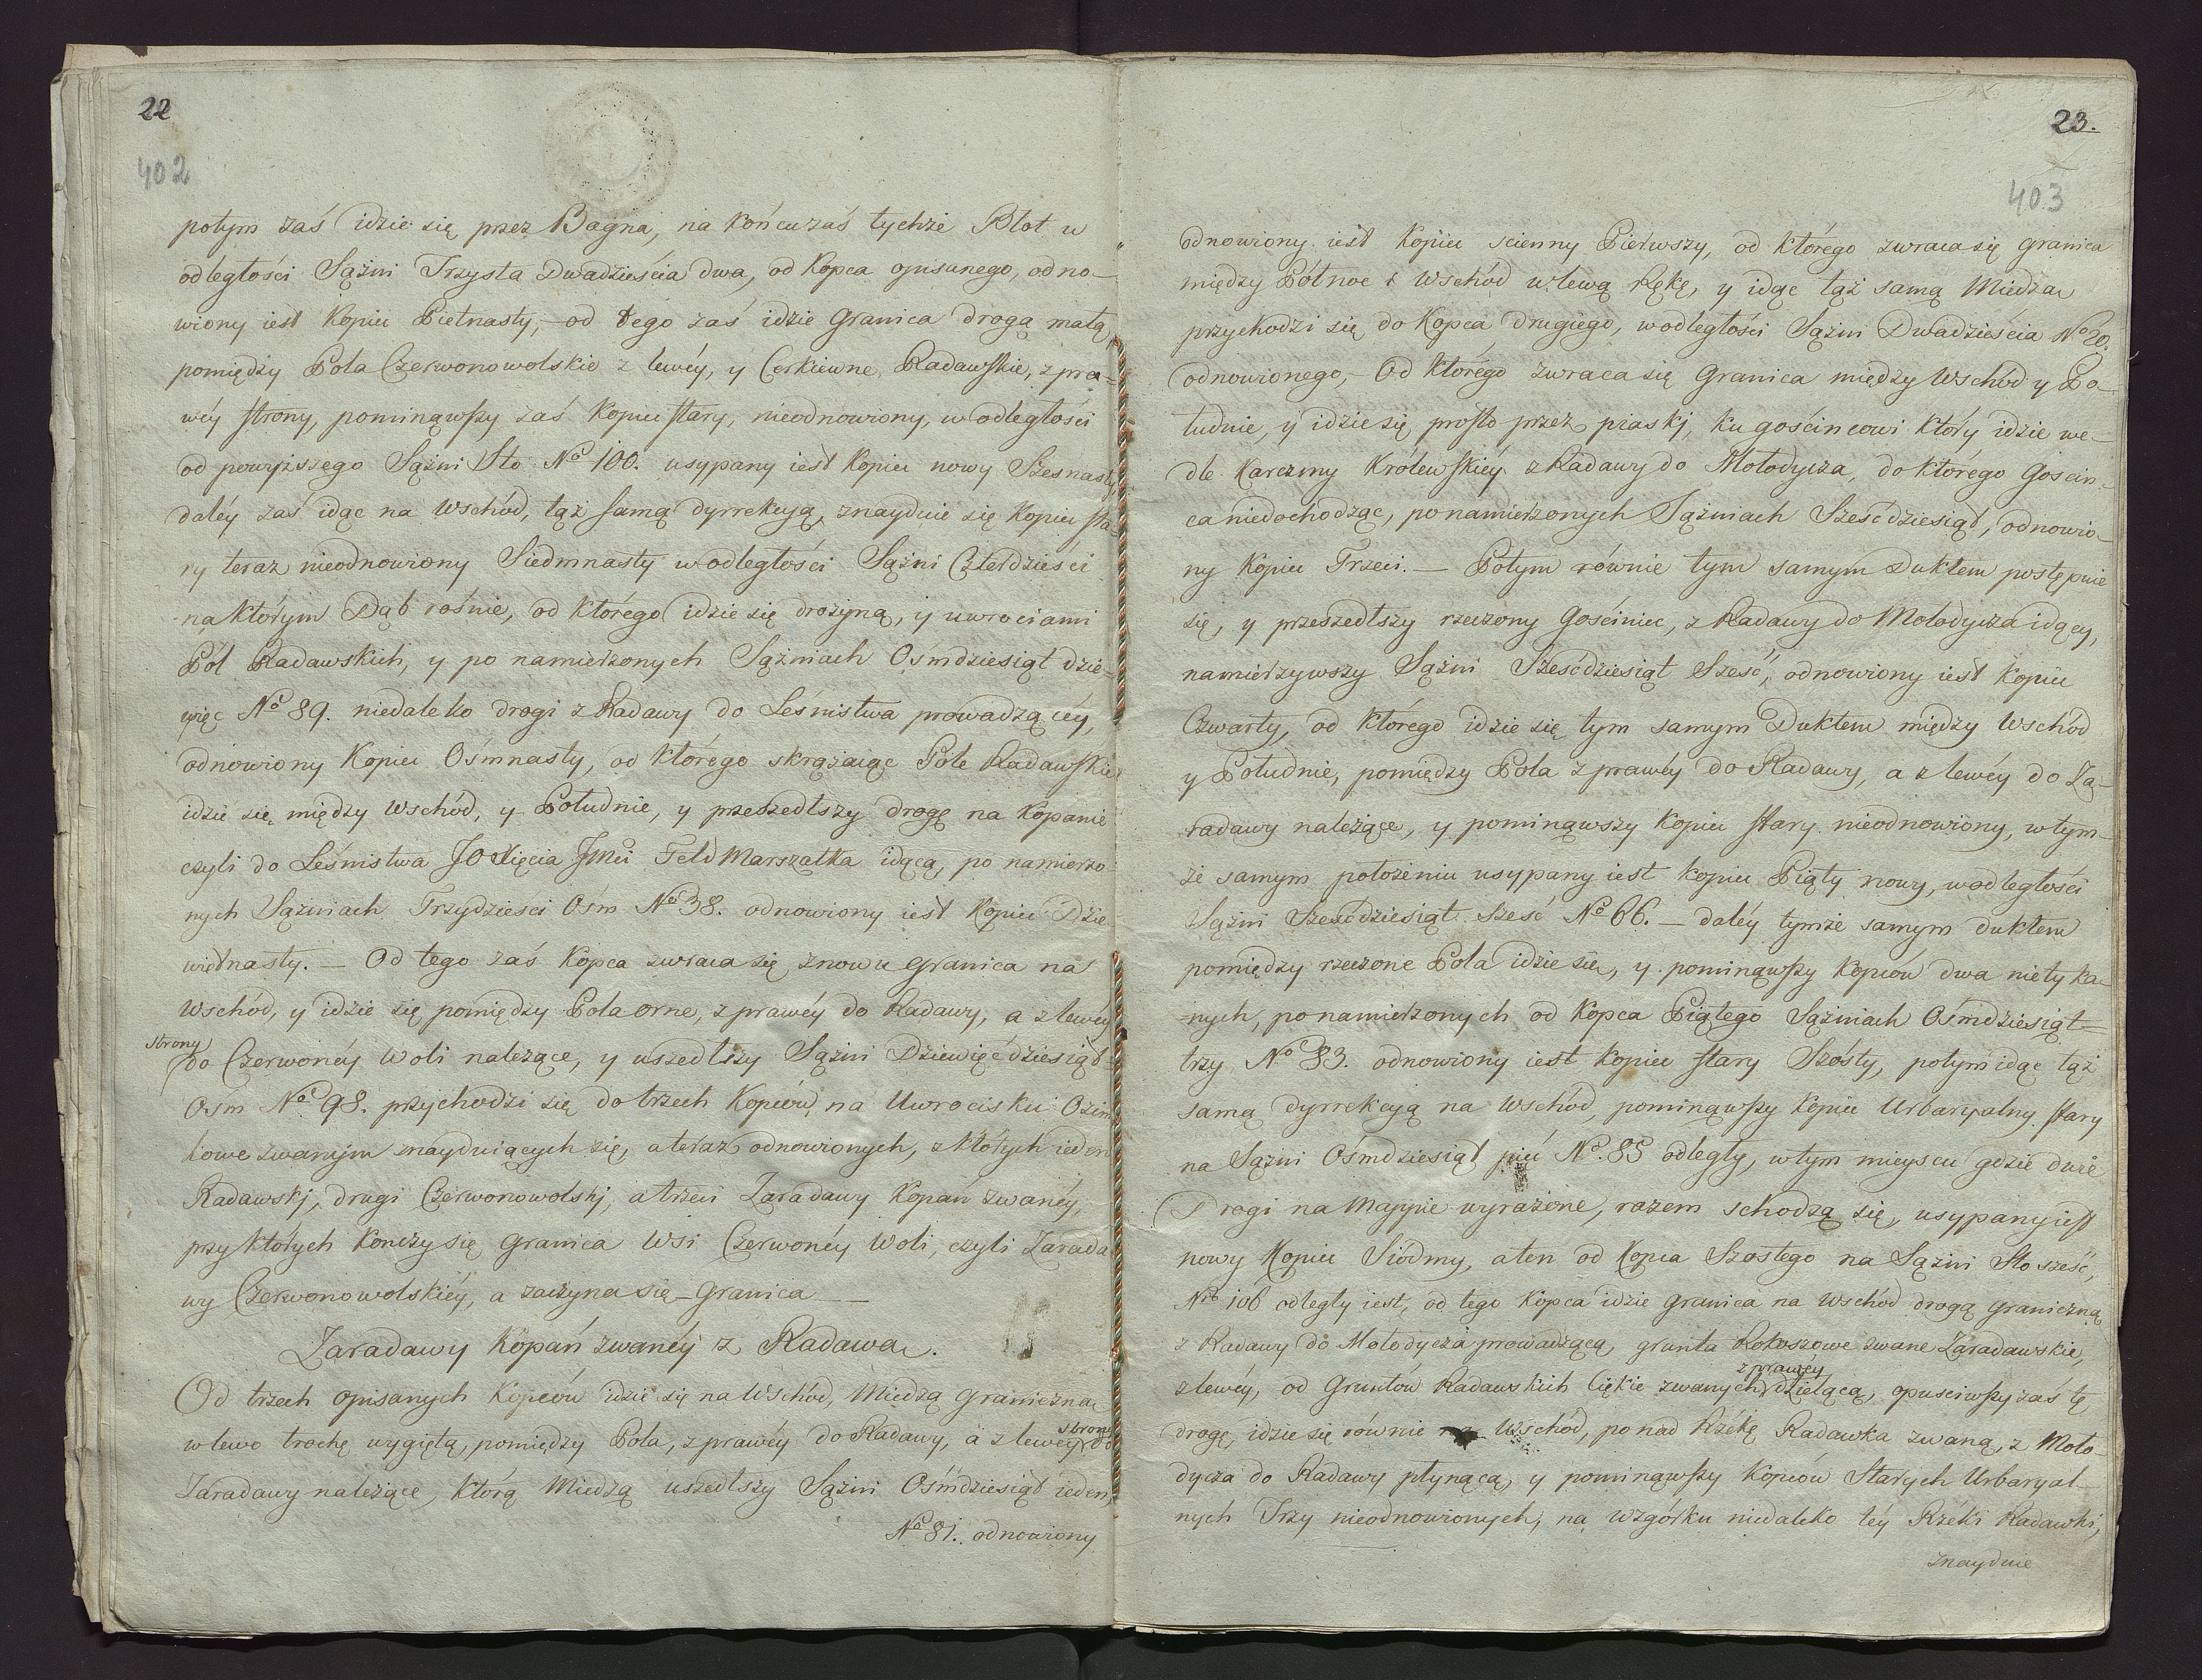 22
402
potym zaś idzie się przez Bagna, na końcu zaś tychże Błot w
odległości Sążni Trzysta Dwadzieścia dwa, od Kopca opisanego, odno-
wiony iest Kopiec Pietnasty, - od tego zaś idzie Granica drogą małą,
pomiędzy Pola Czerwonowolskie z lewéy, y Cerkiewne Radawskie, z pra=
wéy strony, pominąwszy zaś Kopiec stary, nieodnowiony, w odległości
od powyższego Sążni Sto No 100. usypany iest Kopiec nowy Szesnasty,
daléy zaś idąc na Wschód, tąż samą dyrrekcyą, znayduie się Kopiec sta-
ry teraz nieodnowiony Siedmnasty w odległości Sążni Czterdzieści
na którym Dąb rośnie, od którego idzie się drożyną, y uwrociami
Pól Radawskich, y po namierzonych Sążniach Ośmdziesiąt dzie-
więc No 89. niedaleko drogi z Radawy do Leśnistwa prowadzącéy,
odnowiony Kopiec Ośmnasty, od którego skrążaiąc Pole Radawskie
idzie się między Wschód, y Południe, y przeszedłszy drogę na Kopanie
czyli do Leśnistwa JO Xięcia Jmci Feld Marszałka idącą, po namierzo-
nych Sążniach Trzydzieści Ośm No 38. odnowiony iest Kopiec Dzie
więtnasty. — Od tego zaś Kopca zwraca się znowu Granica na
Wschód, y idzie się pomiędzy Pola orne, z prawéy do Radawy, a z lewéy
strony
do Czerwonéy Woli należące, y uszedłszy Sążni Dziewięćdziesiąt
Ośm No 98. przychodzi się do trzech Kopców, na Uwrocisku Ozim
kowe zwanym znayduiących się, a teraz odnowionych, z których ieden
Radawski, drugi Czerwonowolski, a trzeci Zaradawy Kopań zwanéy,
przy których kończy się Granica Wsi Czerwonéy Woli, czyli Zarada
wy Czerwonowolskiéy, a zaczyna się Granica —
Zaradawy Kopań zwanéy z Radawą.
Od trzech opisanych Kopców idzie się na Wschód, Miedzą Graniczną
w lewo trochę wygiętą, pomiędzy Pola, z prawéy do Radawy, a z lewéy do
strony
Zaradawy należące, którą Miedzą uszedłszy Sążni Ośmdziesiąt ieden,
No 81. odnowiony
23.
403
odnowiony iest Kopiec scienny Pierwszy, od którego zwraca się granica
między Północ i Wschód w lewą Rękę, y idąc tąż samą Miedzą
przychodzi się do Kopca drugiego, w odległości Sążni Dwadzieścia No 20.
odnowionego, - Od którego zwraca się Granica między Wschód y Po-
łudnie, y idzie się prosto przez piaski, ku gościncowi który idzie we-
dle Karczmy Królewskiéy z Radawy do Mołodycza, do którego Gościn-
ca niedochodząc, po namierzonych Sążniach Sześćdziesiąt, odnowio-
ny Kopiec Trzeci. — Potym równie tym samym Duktem postępuie
się, y przeszedłszy rzeczony Gościniec, z Radawy do Mołodycza idący,
namierzywszy Sążni Sześćdziesiąt Sześć, odnowiony iest Kopiec
Czwarty, od którego idzie się tym samym Duktem między Wschód
y Południe, pomiędzy Pola z prawéy do Radawy, a z lewéy do Za-
radawy należące, y pominąwszy Kopiec stary nieodnowiony, w tym-
że samym położeniu usypany iest Kopiec Piąty nowy, w odległości
Sążni Sześćdziesiąt Sześć No 66. — daléy tymże samym duktem
pomiędzy rzeczone Pola idzie się, y pominąwszy Kopców dwa nietyka-
nych, po namierzonych od Kopca Piątego Sążniach Ośmdziesiąt=
trzy No 83. odnowiony iest Kopiec stary Szósty, potym idąc tąż
samą dyrrekcyą na Wschód, pominąwszy Kopiec Urbaryalny stary
na Sążni Ośmdziesiąt pięć No. 85 odległy, w tym mieyscu gdzie dwie
Drogi na Mappie wyrażone, razem schodzą się, usypany iest
nowy Kopiec Siódmy, a ten od Kopca Szostego na Sążni Sto sześć,
Nro 106 odległy iest, od tego Kopca idzie Granica na Wschód drogą graniczną
z Radawy do Mołodycza prowadzącą, grunta Rokoszowe zwane Zaradawskie,
z prawéy
z lewéy, od Gruntów Radawskich Ciękie zwanych dzielącą, opuściwszy zaś tę
drogę, idzie się równie na Wschód, ponad Rzékę Radawka zwaną, z Moło-
dycza do Radawy płynącą, y pominąwszy Kopców Starych Urbaryal-
nych Trzy nieodnowionych, na Wzgórku niedaleko téy Rzéki Radawki,
znayduie